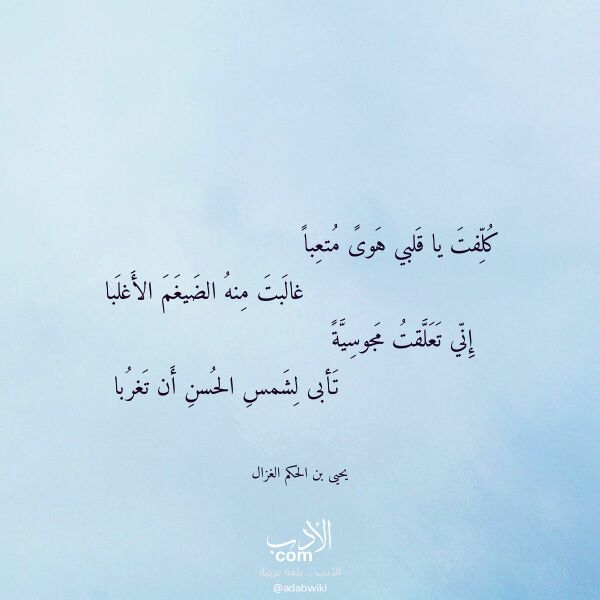 كُلِّفتَ يا قَلبي هَوىً مُتعِباً
غالَبتَ مِنهُ الضَيغَمَ الأَغلَبا
إِنّي تَعَلَّقتُ مَجوسِيَّةً
تَأبى لِشَمسِ الحُسنِ أَن تَغرُبا
يحيى بن الحكم الغزال
الأدب
com
الأدب .. بلغة عربية
@adabwiki